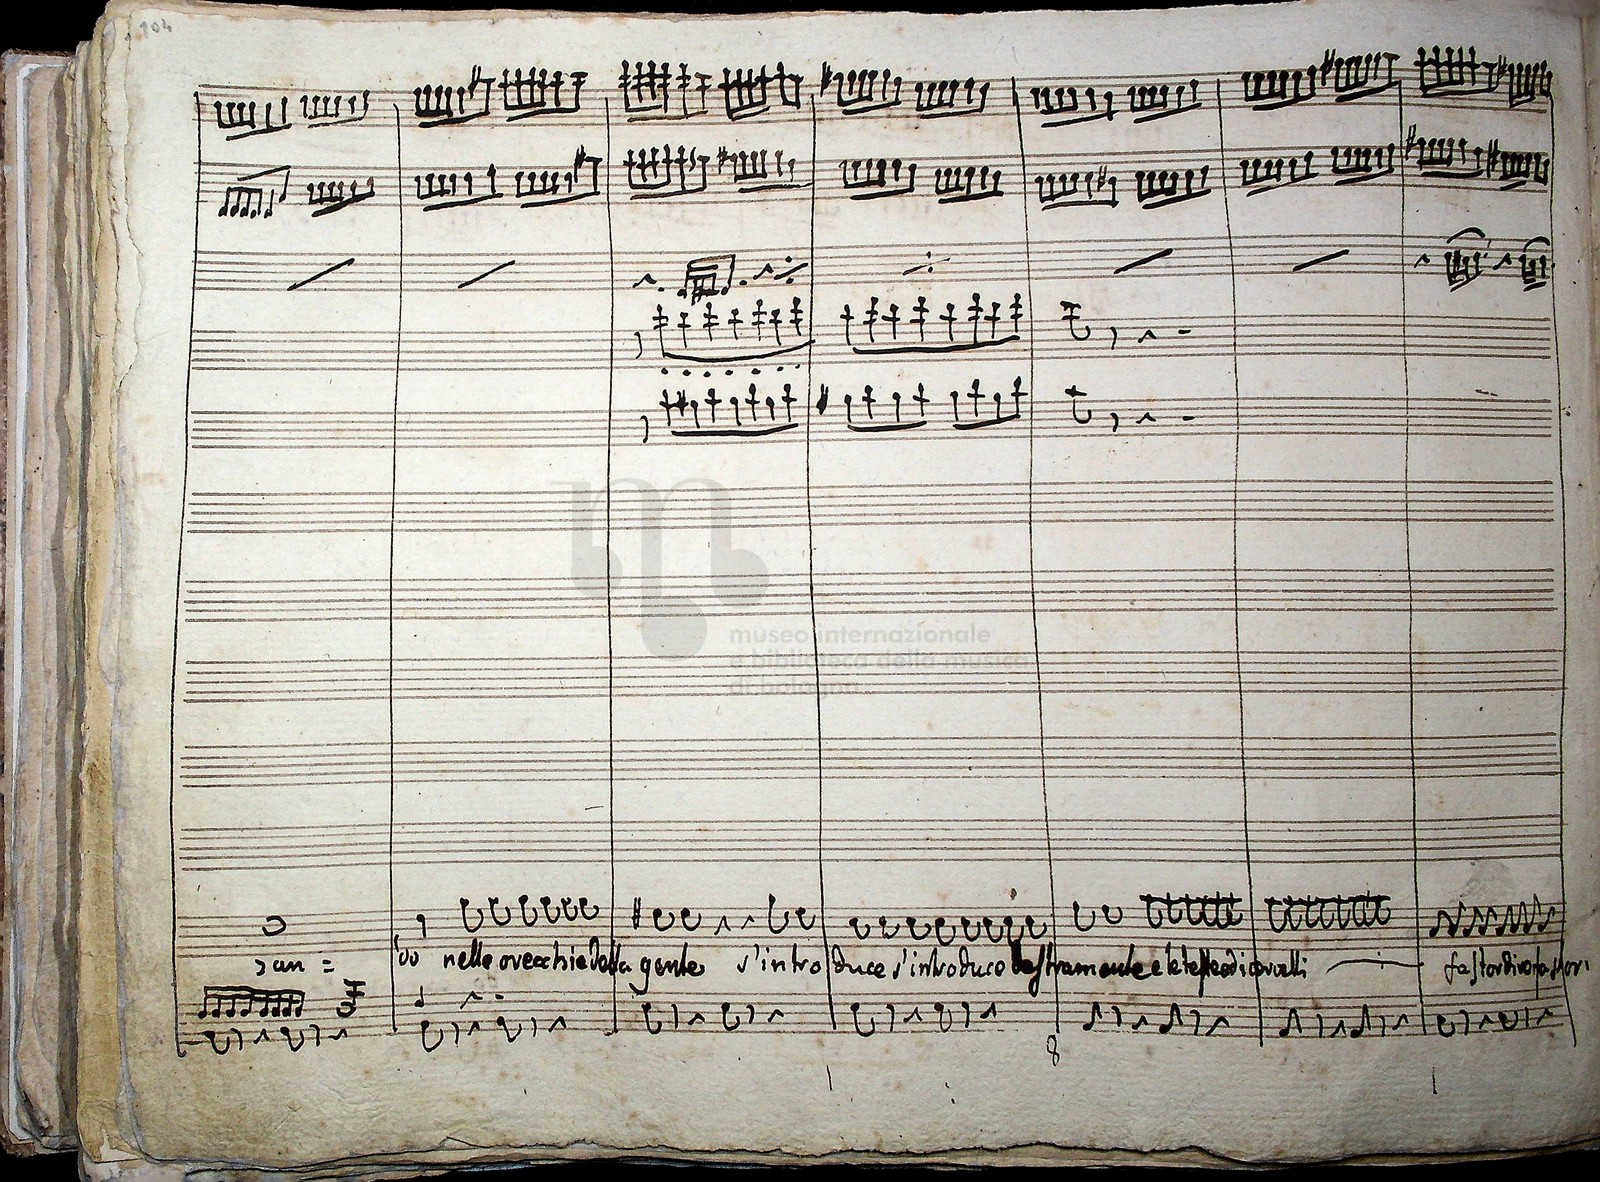 104
museo internazionale
e biblioteca della musica
di bologna
zan = do nelle orecchie della gente s'intro duce s'introduce destramente e le teste ed i cervelli fa stordir e fa stor:
8